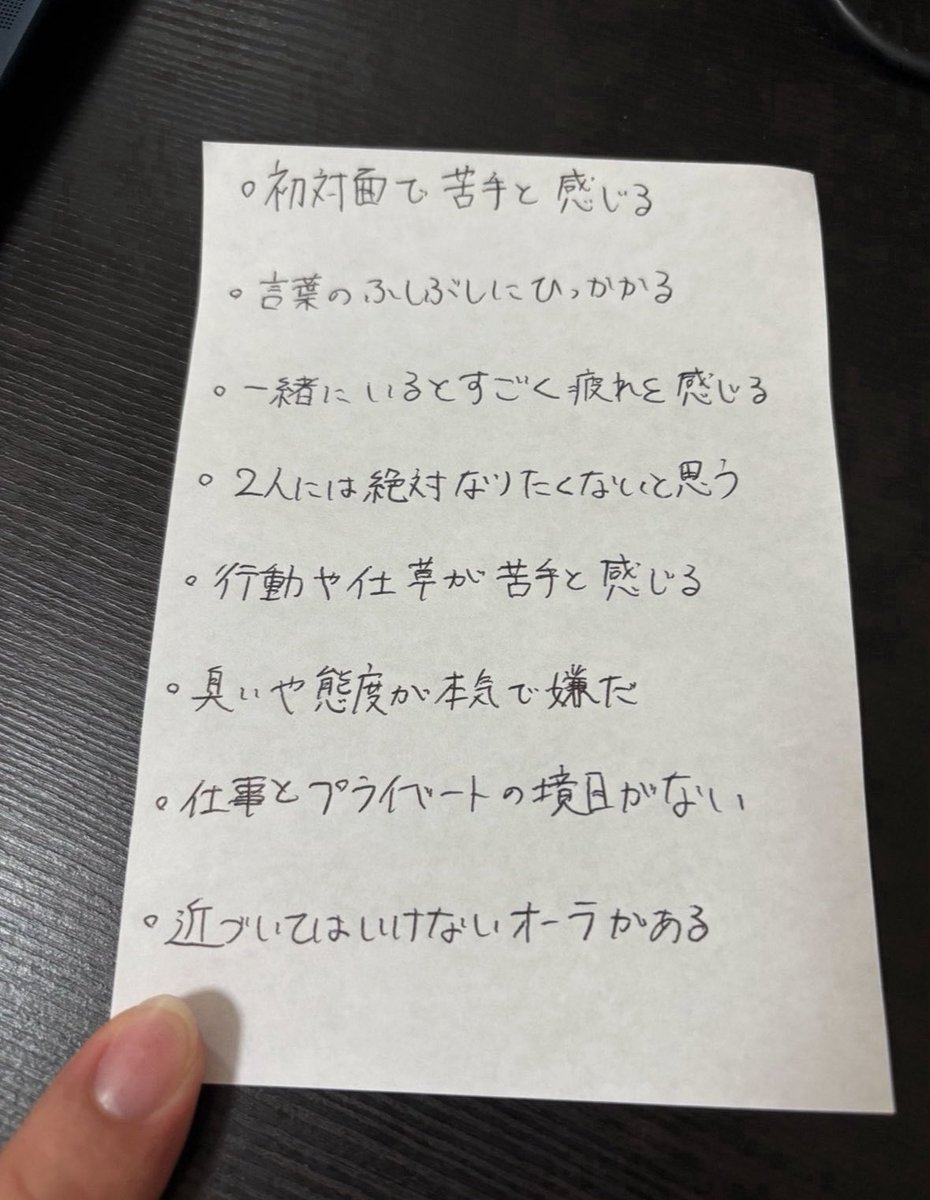 ○ 初対面で苦手と感じる
○ 言葉のふしぶしにひっかかる
○ 一緒にいるとすごく疲れを感じる
○ 2人には絶対なりたくないと思う
○ 行動や仕草が苦手と感じる
○ 臭いや態度が本気で嫌だ
○ 仕事とプライベートの境目がない
○ 近づいてはいけないオーラがある